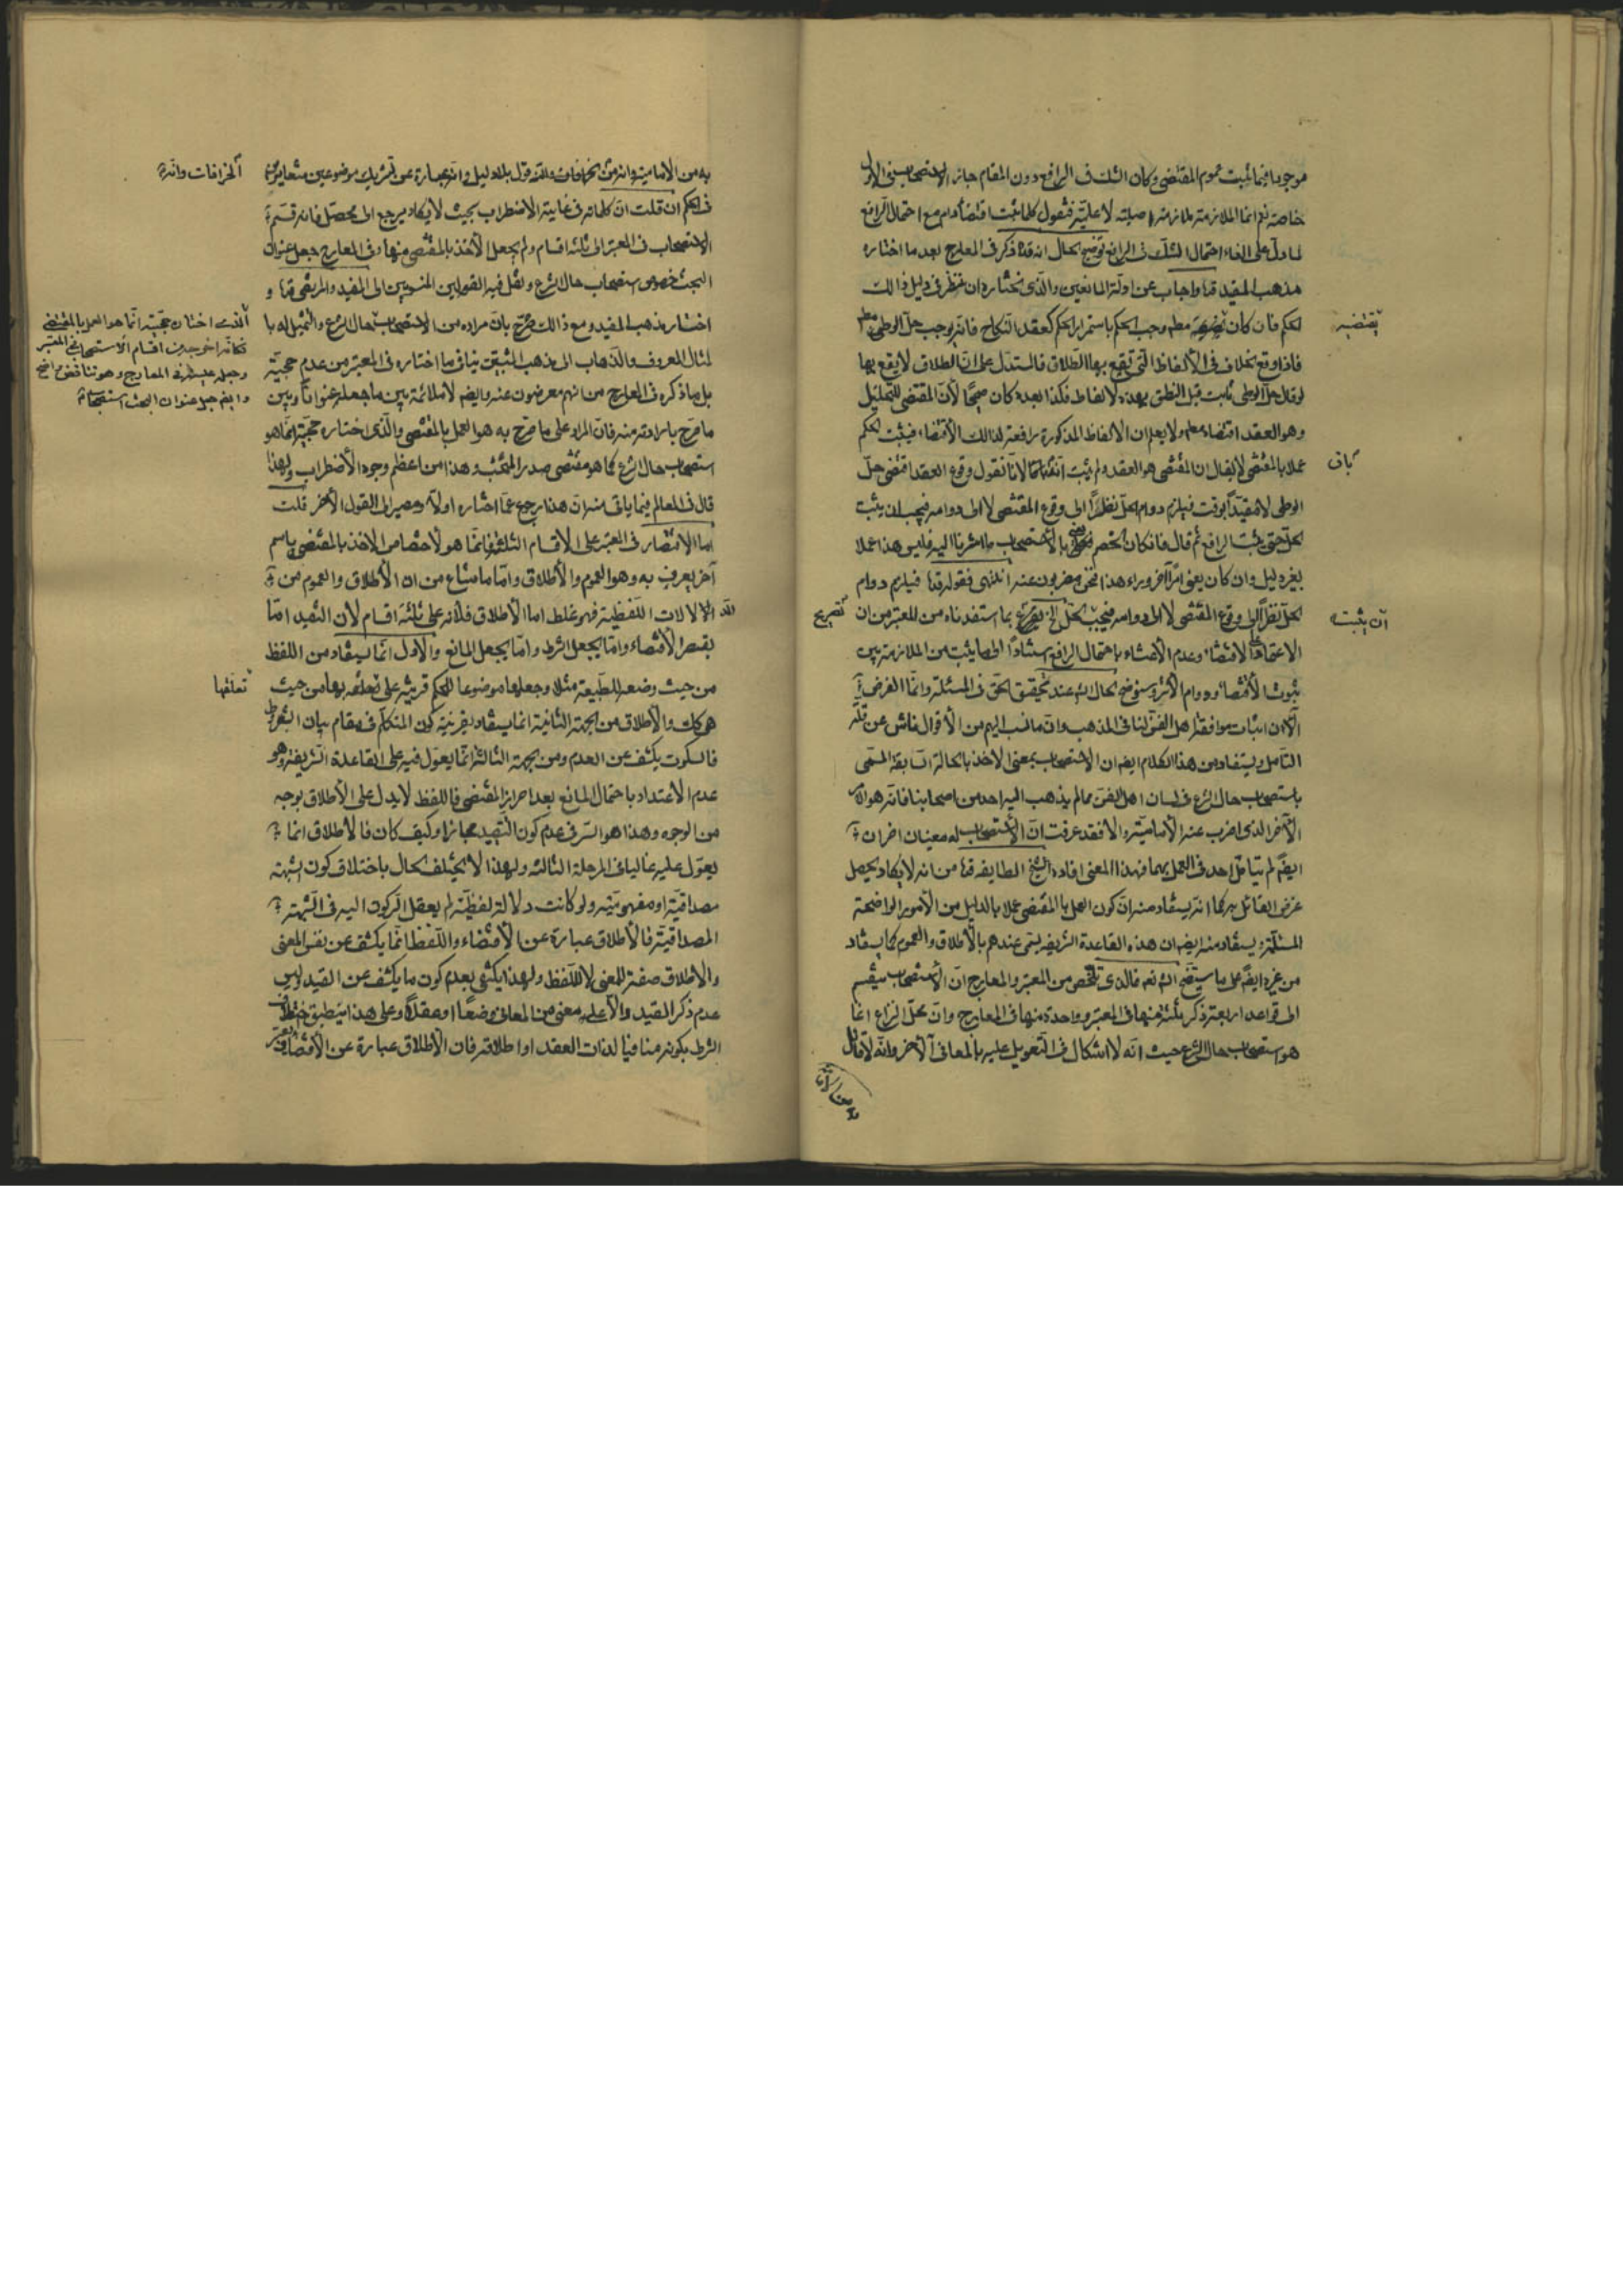 موجودا فيما ثبت عموم المقتضى وكان الشك في الرافع دون المقام جائز الاستصحاب في الاول
خاصة نعم انما الملازمة ملازمة لا علية فنقول كلما ثبت اقتضاء دام مع احتمال الرافع
لما دل على الغاء احتمال الشك فى الرافع توضيح الحال انه قده ذكر فى المعارج بعد ما اختاره
مذهب المفيد قده واجاب عن ادلة المانعين والذى نختاره ان ننظر فى دليل ذالك
الحكم فان كان يقتضيه مطلقا وجب الحكم باستمرار الحكم كعقد النكاح فانه يوجب حل الوطى مطلقا
يقتضيه
فاذا وقع الخلاف فى الالفاظ التى تقع بها الطلاق فالمستدل على ان الطلاق لا يقع بها
لو قال حل الوطى ثابت قبل النطق بهذه الالفاظ فكذا بعده كان صحيحا لان المقتضى للتحليل
وهو العقد اقتضاه مطلقا ولا يعلم ان الالفاظ المذكورة رافعة لذالك الاقتضاء فيثبت الحكم
عملا بالمقتضى لا يقال ان المقتضى هو العقد ولم يثبت انه باق لانا نقول وقوع العقد اقتضى حل
باق
الوطى لا مقيدا بوقت فيلزم دوام الحل نظرا الى وقوع المقتضى لا الى دوامه فيجب ان يثبت
الحل حتى يثبت الرافع ثم قال فان كان الخصم يعنى بالاستصحاب ما اشرنا اليه فليس هذا عملا
بغير دليل وان كان يعنى امرا آخر وراء هذا فنحن مضربون عنه انتهى فقوله قده فيلزم دوام
الحل نظرا الى وقوع المقتضى لا الى دوامه فيجب الحل الخ تصريح بما استفدناه من المعتبر من ان
ان يثبت
تصريح
الاعتماد على الاقتضاء وعدم الاعتناء باحتمال الرافع استنادا الى ما يثبت من الملازمة بين
ثبوت الاقتضاء ودوام الاثر وسنوضح الحال انشاء الله عند تحقيق الحق فى المسئلة وانما الغرض
الآن اثبات موافقة اهل الفن لنا فى المذهب وان ما نسب اليهم من الاقوال ناش عن قلة
التأمل ويستفاد من هذا الكلام ايضا ان الاستصحاب بمعنى الاخذ بالحالة السابقة المسمى
باستصحاب حال الشرع فى لسان اهل الفن مما لم يذهب اليه احد من اصحابنا فانه هو الامر
الآخر الذى اضرب عنه الامامية والا فقد عرفت ان الاستصحاب له معنيان اخران
ايضا لم يتأمل احد فى العمل بهما فهذا المعنى افاده الشيخ الطايفة قده من انه لا يكاد يحصل
غرض القائل به كما انه يستفاد منه ان كون العمل بالمقتضى عملا بالدليل من الامور الواضحة
المسلمة ويستفاد منه ايضا ان هذه القاعدة الشريفة يسمى عندهم بالاطلاق والعموم كما يستفاد
من غيره ايضا على ما سيتضح انشاء الله تعالى فالذى تلخص من المعتبر والمعارج ان الاستصحاب ينقسم
الى قواعد اربعة ذكر ثلثة منها فى المعتبر وواحدة منها فى المعارج وان محل النزاع انما
هو استصحاب حال الشرع حيث انه لا اشكال فى التعويل عليه بالمعانى الآخر وانه لا قائل
به من الامامية وانه من الخرافات وانه قول بلا دليل وانه عبارة عن تشريك موضوعين متغايرين
الخرافات وانه
فى الحكم ان قلت ان كلماته فى غاية الاضطراب بحيث لا يكاد يرجع الى محصل فانه قسم
الاستصحاب فى المعتبر الى ثلثة اقسام ولم يجعل الاخذ بالمقتضى منها وفى المعارج جعل عنوان
البحث خصوص استصحاب حال الشرع ونقل فيه القولين المنسوبين الى المفيد والمرتضى قدهما و
اختار مذهب المفيد ومع ذالك صرح بان مراده من الاستصحاب حال الشرع والتمثيل له با
الذى اختار حجيته انما هو العمل بالمقتضى
فكانه اخرجه من اقسام الاستصحاب فى المعتبر
وجعله منه فى المعارج وهو تناقض واضح
وايضا جعل عنوان البحث استصحاب
لمثال المعروف والذهاب الى مذهب المثبتين ينافى ما اختاره فى المعتبر من عدم حجيته
بل ما ذكره فى المعارج من انهم معرضون عنه وايضا لا ملائمة بين ما جعله عنوانا وبين
ما صرح بارادته منه فان المراد على ما صرح به هو العمل بالمقتضى والذى اختاره حجيته انما هو
استصحاب حال الشرع كما هو مقتضى صدر المبحث وهذا من اعظم وجوه الاضطراب ولهذا
قال فى المعالم فيما ياتى منه ان هذا رجوع عما اختاره اولا ومصير الى القول الآخر قلت
اما الاقتصار فى المعتبر على الاقسام الثلثة فانما هو لاختصاص الاخذ بالمقتضى باسم
آخر يعرف به وهو العموم والاطلاق واما ما شاع من ان الاطلاق والعموم من
الدلالات اللفظية فهو غلط اما الاطلاق فلانه على ثلثة اقسام لان التقييد اما
بقصر الاقتضاء واما بجعل الشرط واما بجعل المانع والاول انما يستفاد من اللفظ
من حيث وضعه للطبيعة مثلا وجعلها موضوعا للحكم قرينة على تعلقه بها من حيث
تعلقها
هى كك والاطلاق من الجهة الثانية انما يستفاد بقرينة كون المتكلم فى مقام بيان الشروط
فالسكوت يكشف عن العدم ومن الجهة الثالثة انما يعول فيه على القاعدة الشريفة وهو
عدم الاعتداد باحتمال المانع بعد احراز المقتضى فاللفظ لا يدل على الاطلاق بوجه
من الوجوه وهذا هو السر فى عدم كون التقييد مجازا وكيف كان فالاطلاق انما
يعول عليه غالبا فى المرحلة الثالثة ولهذا لا يختلف الحال باختلاف كون الشبهة
مصداقية او مفهومية ولو كانت دلالة لفظية لم يعقل الركون اليه فى الشبهة
المصداقية فالاطلاق عبارة عن الاقتضاء واللفظ انما يكشف عن نفس المعنى
والاطلاق صفة للمعنى لا للفظ ولهذا يكتفى بعدم كون ما يكشف عن القيد وليس
عدم ذكر القيد دالا على معنى من المعانى وضعا او عقلا وعلى هذا ينطبق
الشرط بكونه منافيا لذات العقد او اطلاقه فان الاطلاق عبارة عن الاقتضاء